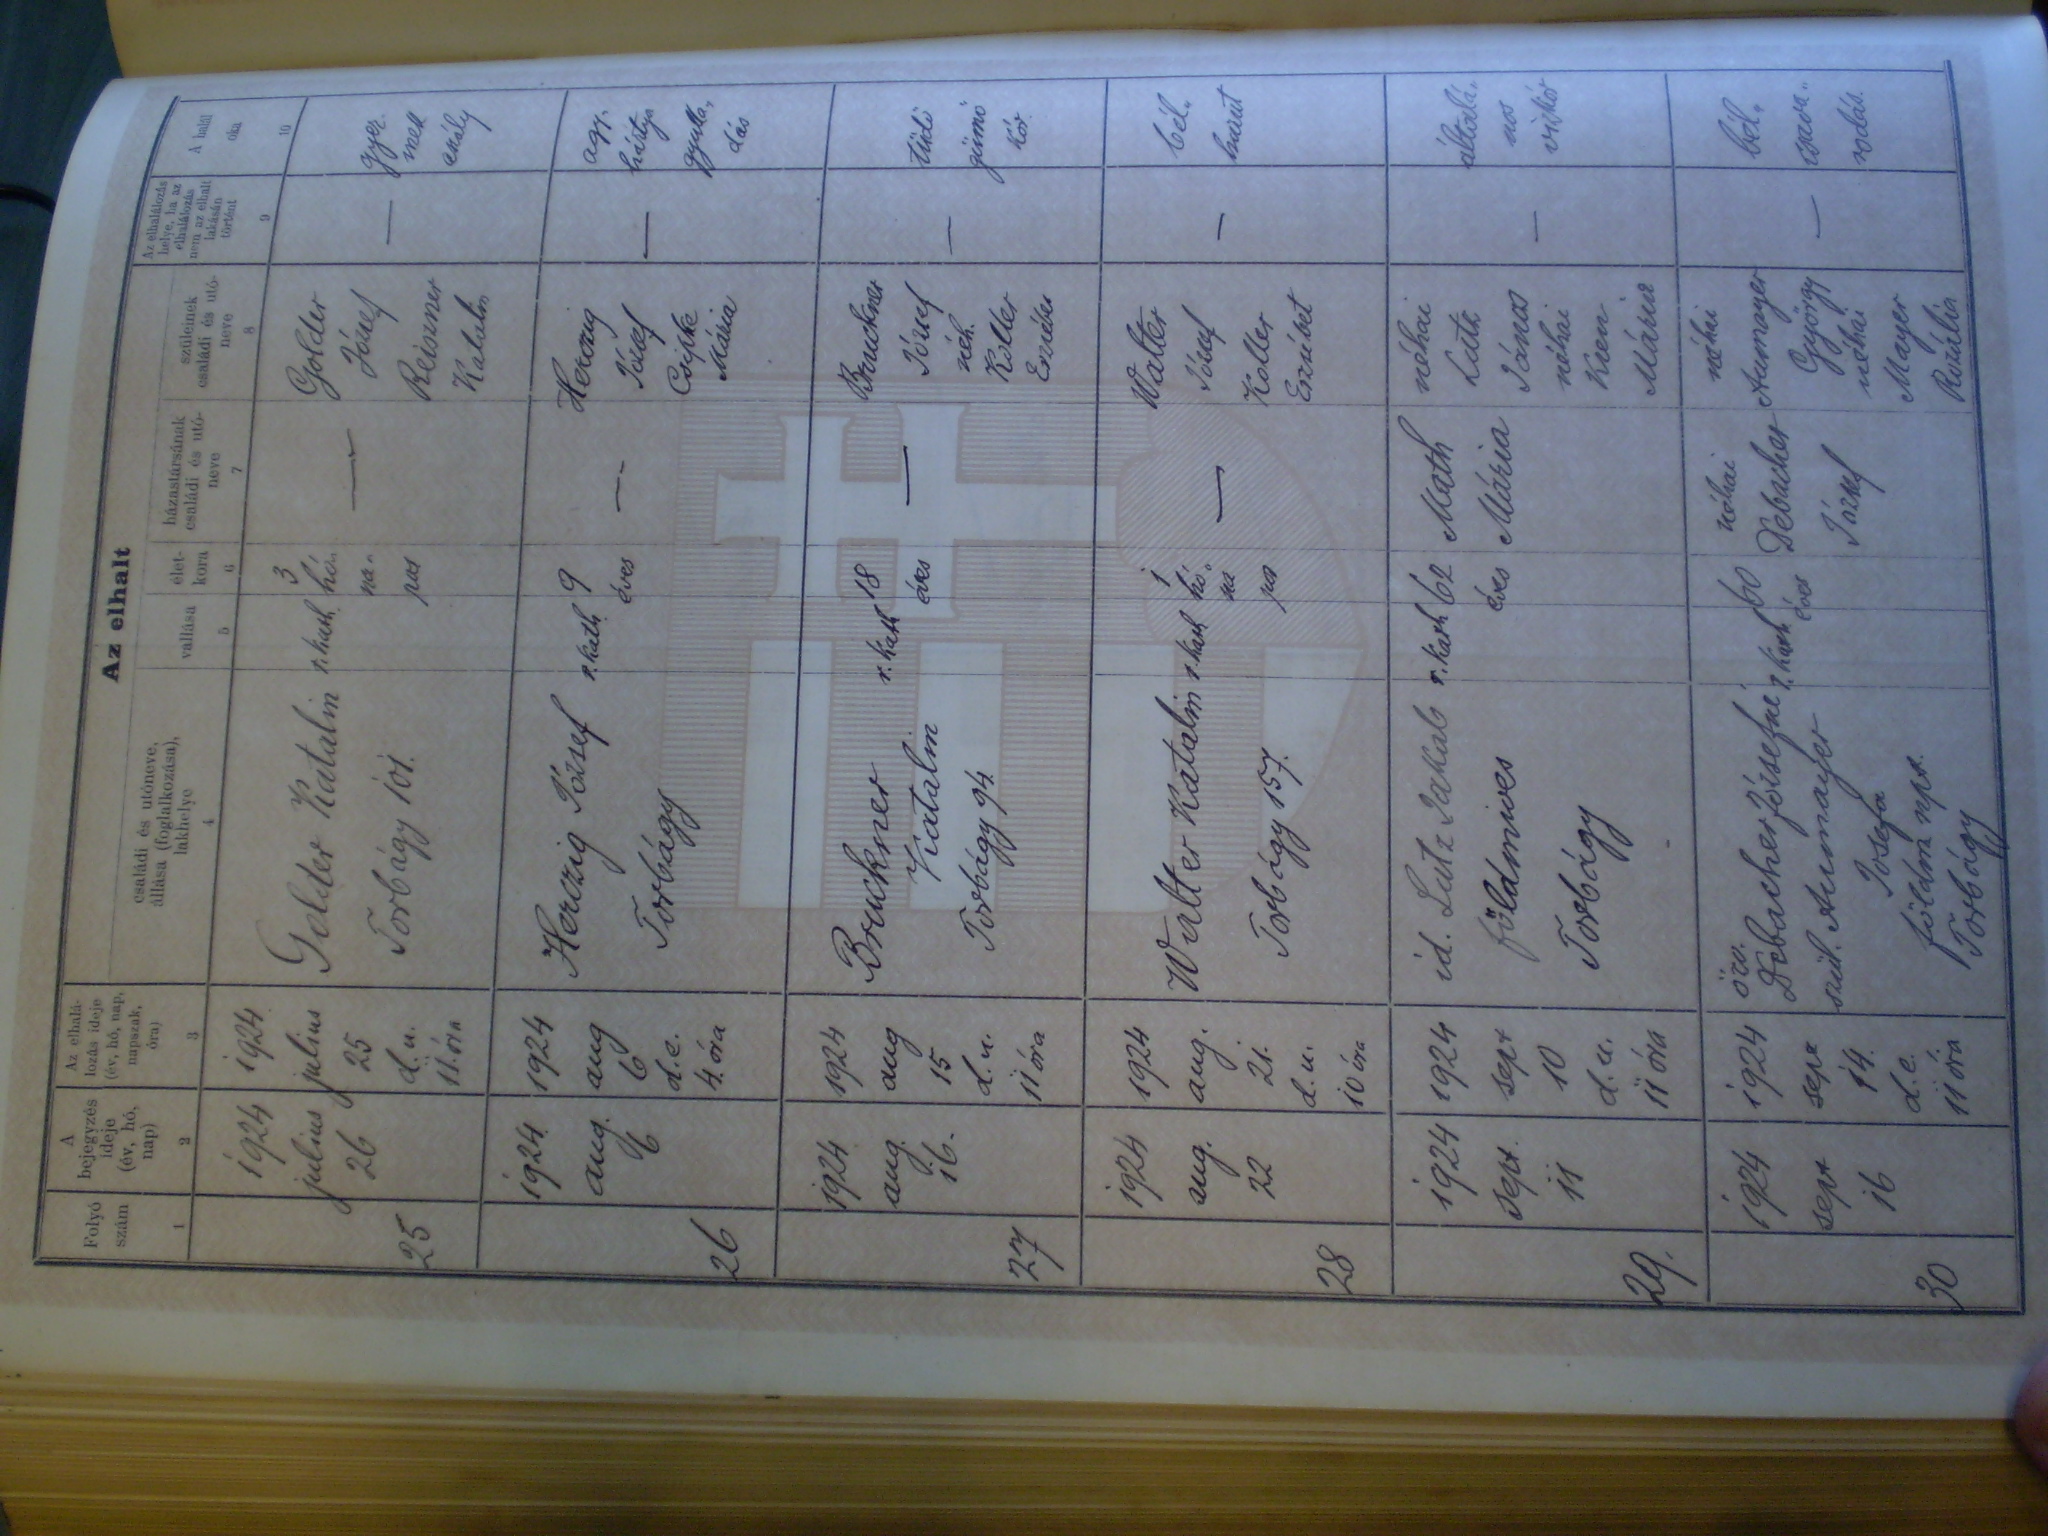 Az elhalt
Folyó
szám
1
A
bejegyzés
ideje
(év, hó,
nap)
2
Az elhalá-
lozás ideje
(év, hó, nap,
napszak,
óra)
3
családi és utóneve,
állása (foglalkozása),
lakhelye
4
vallása
5
élet-
kora
6
házastársának
családi és utó-
neve
7
szüleinek
családi és utó-
neve
8
Az elhalálozás
helye, ha az
elhalálozás
nem az elhalt
lakásán
történt
9
A halál
oka
10
25
1924
julius
26
1924.
julius
25
d.u.
11 óra
Golder Katalin
Torbágy 101.
r. kath.
3
hó-
na-
pos
—
Golder
József
Reiszner
Katalin
—
gyer-
mek
aszály
26
1924.
aug.
6
1924
aug
6
d.e.
4 óra
Herczig József
Torbágy
r. kath.
9
éves
—
Herczig
József
Csipke
Mária
—
agy-
hártya
gyulla-
dás
27
1924
aug.
16.
1924
aug
15
d.u.
11 óra
Bruckner
Katalin
Torbágy 94.
r. kath
18
éves
—
Bruckner
József
néh.
Koller
Erzsébet
—
tüdő
gümő
kór.
28
1924
aug.
22
1924
aug.
21.
d.u.
10 óra
Walter Katalin
Torbágy 157.
r. kath
1
hó-
na
pos
—
Walter
József
Koller
Erzsébet
—
bél-
hurut
29.
1924
sept.
11
1924
sept
10
d.u.
11 óra
id. Lutz Jakab
földmives
Torbágy
r. kath
62
éves
Math
Mária
néhai
János
néhai
Mária
—
általá-
nos
vizkór
30
1924
sept
16
1924
sept
14.
d.e.
11 óra
özv.
Debacher Józsefné
szül. Aumayer
Josefa
földm. nps.
Torbágy
r. kath
60
éves
néhai
Debacher
József
néhai
Aumayer
György
néhai
Mayer
Rozália
—
bél-